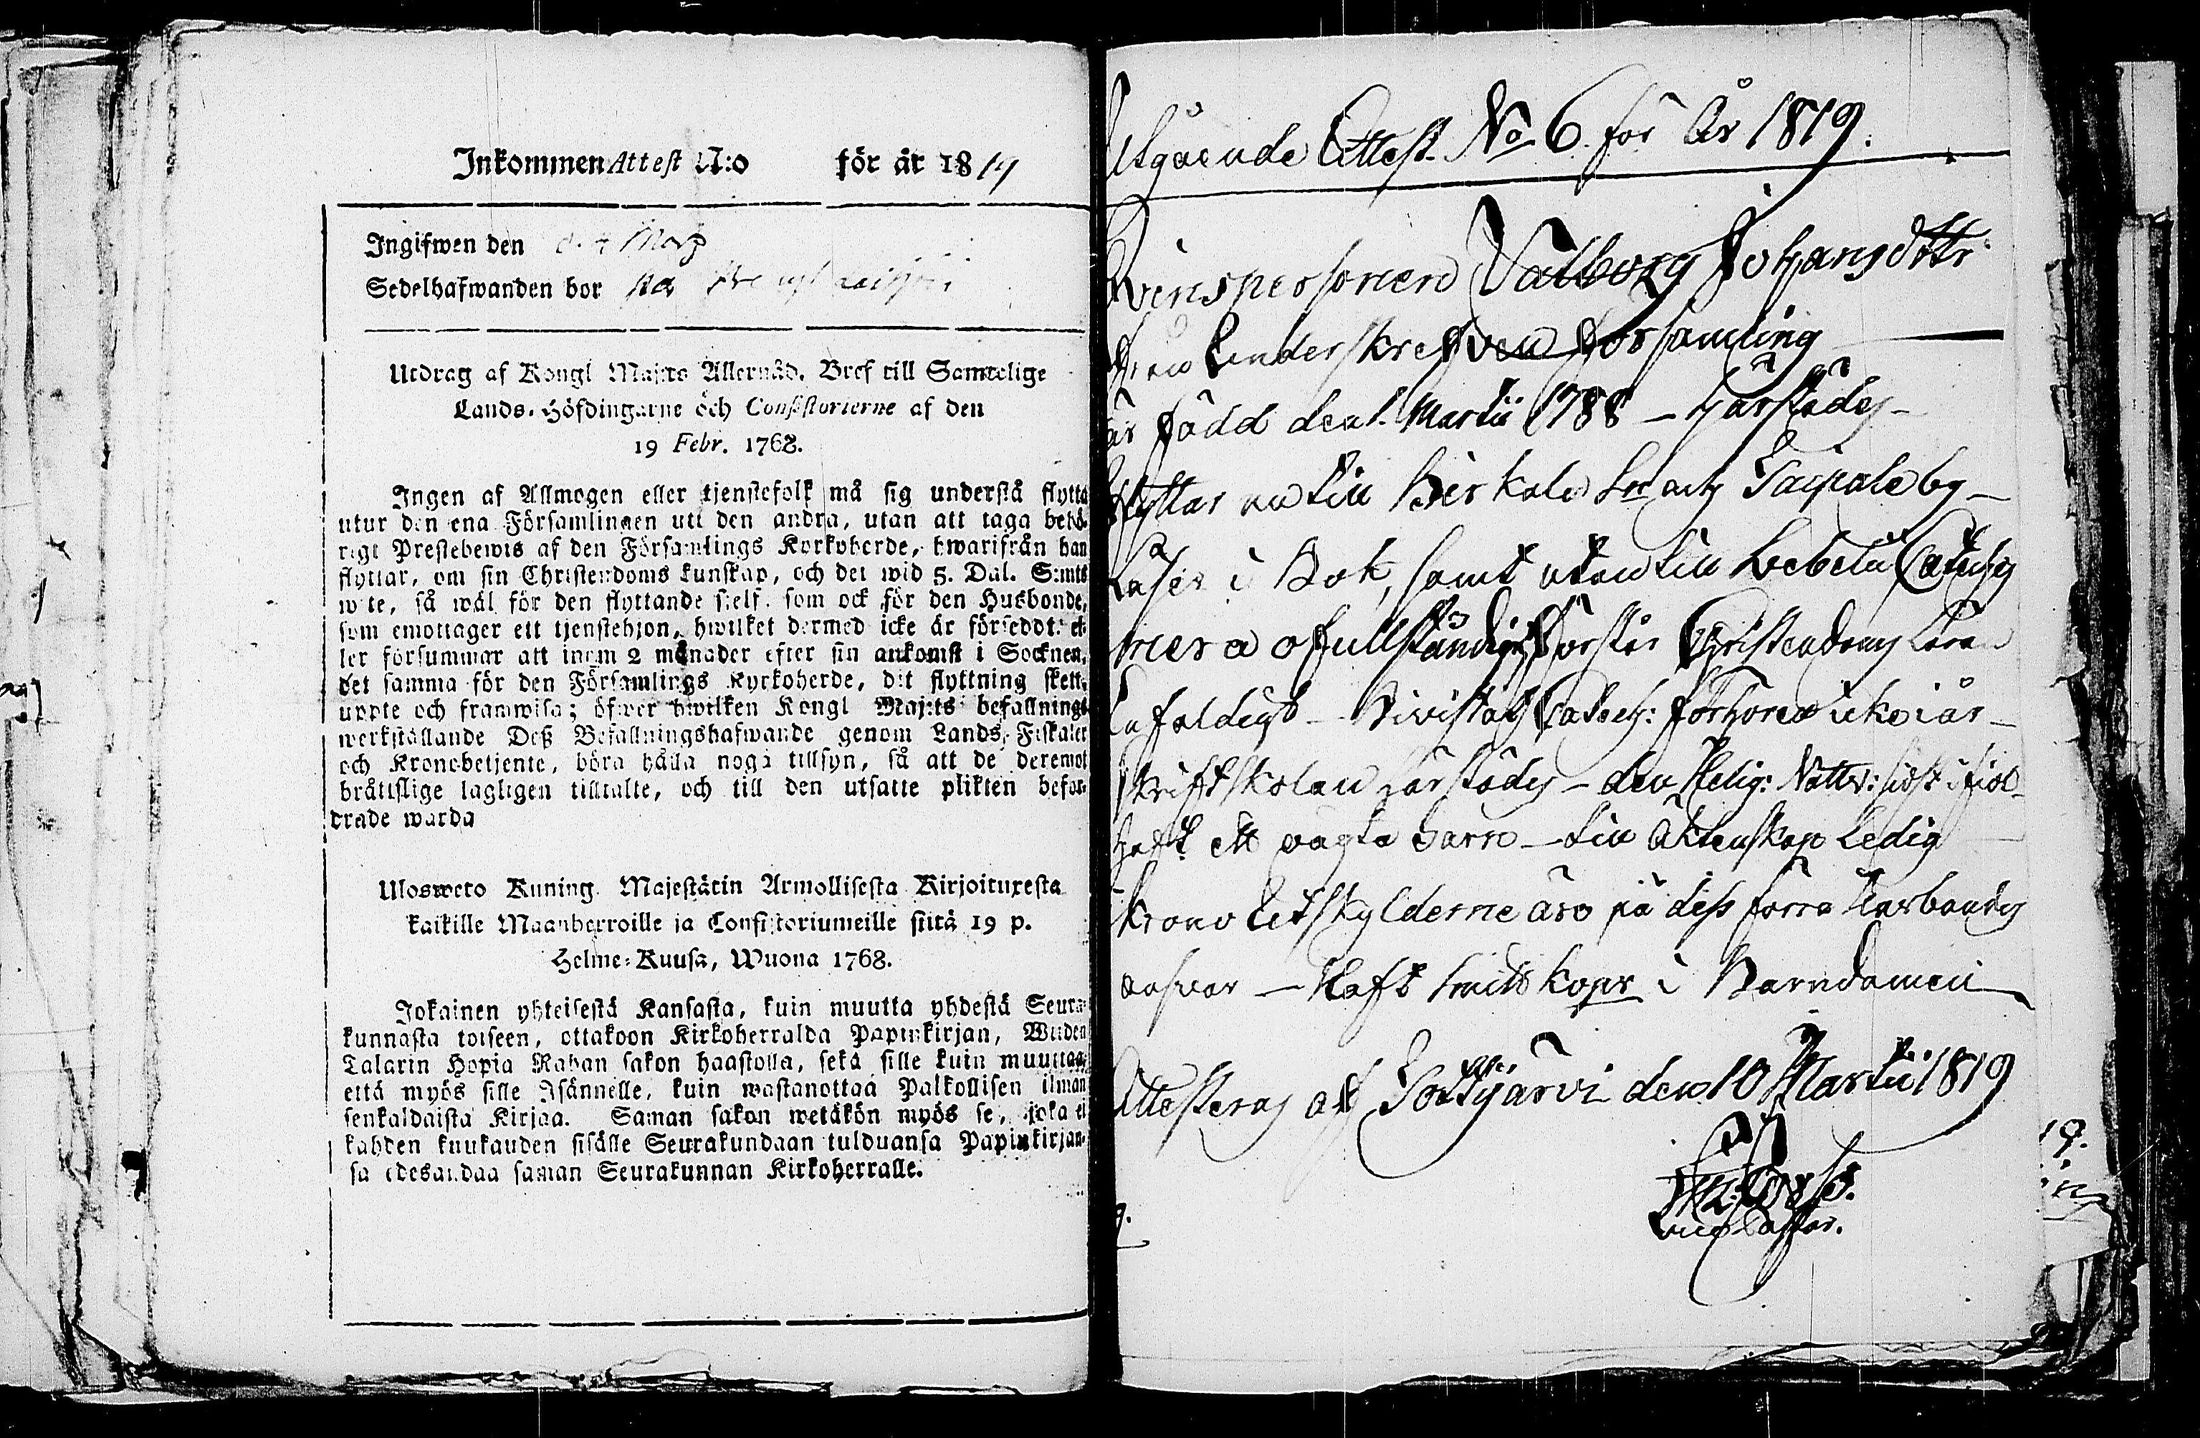 Inkommen Attest N:o för år 1819
Ingifwen den d. 4 Mars
Sedelhafwanden bor
Utdrag af Kongl Maj:ts Allernåd. Bref till Samtelige
Lands-Höfdingarne och Consistorierne af den
19 Febr. 1768.
Ingen af Allmogen eller tjenstefolk må sig understå flytta
utur den ena Församlingen uti den andra, utan att taga behö-
rigt Prestebewis af den Församlings Kyrkoherde, hwarifrån han
flyttar, om sin Christendoms kunskap, och det wid 5. Dal. S:mts
wite, så wäl för den flyttande sjelf, som ock för den Husbonde,
som emottager ett tjenstehjon, hwilket dermed icke är försedt: el-
ler försummar att inom 2 månader efter sin ankomst i Socknen,
det samma för den Församlings Kyrkoherde, dit flyttning skett,
uppte och framwisa; öfwer hwilken Kongl Maj:ts befallnings
werkställande Deß Befallningshafwande genom Lands-Fiskaler
och Kronobetjente, böra hålla noga tillsyn, så att de deremot
bråttslige lagligen tilltalte, och till den utsatte plikten befor-
drade warda
Uloswetο Kuning. Majestätin Armollisesta Kirjoituxesta
kaikille Maanherroille ja Consistoriumeille siitä 19 p.
Helme-Kuusa, Wuona 1768.
Jokainen yhteisestä Kansasta, kuin muutta yhdestä Seura-
kunnasta toiseen, ottakoon Kirkoherralda Papinkirjan, Wiiden
Talarin Hopia Rahan sakon haastolla, sekä sille kuin muuttaa,
että myös sille Isännelle, kuin wastanottaa Palkollisen ilman
senkaldaista Kirjaa. Saman sakon wetäkön myös se, joka ei
kahden kuukauden sisälle Seurakundaan tulduansa Papinkirjan-
sa edesandaa saman Seurakunnan Kirkoherralle.
Utgående Attest. No 6. för År 1819.
Qvinspersonen Valborg Johansdottr
från Underskrefven församling
är född den 1. Martii 1788 – härstädes –
flyttar nu till Birkala Sn och Taipale by –
Läser i Bok, samt utan till Lebelii Catechs
mera ofullständigt, förstår Christendoms Läran
Enfaldigt – Bivistat Catech: förhören icke i år –
skriftskolan härstädes – den Helig: Nattv: sidst i fiol –
haft ett oägta Barn – till Äktenskap Ledig
Krono Utskylderne äro på dess förra Husbondes
ansvar – Haft Smittkopor i Barndomen
Attesteras af Tottijärvi den 10 Martii 1819